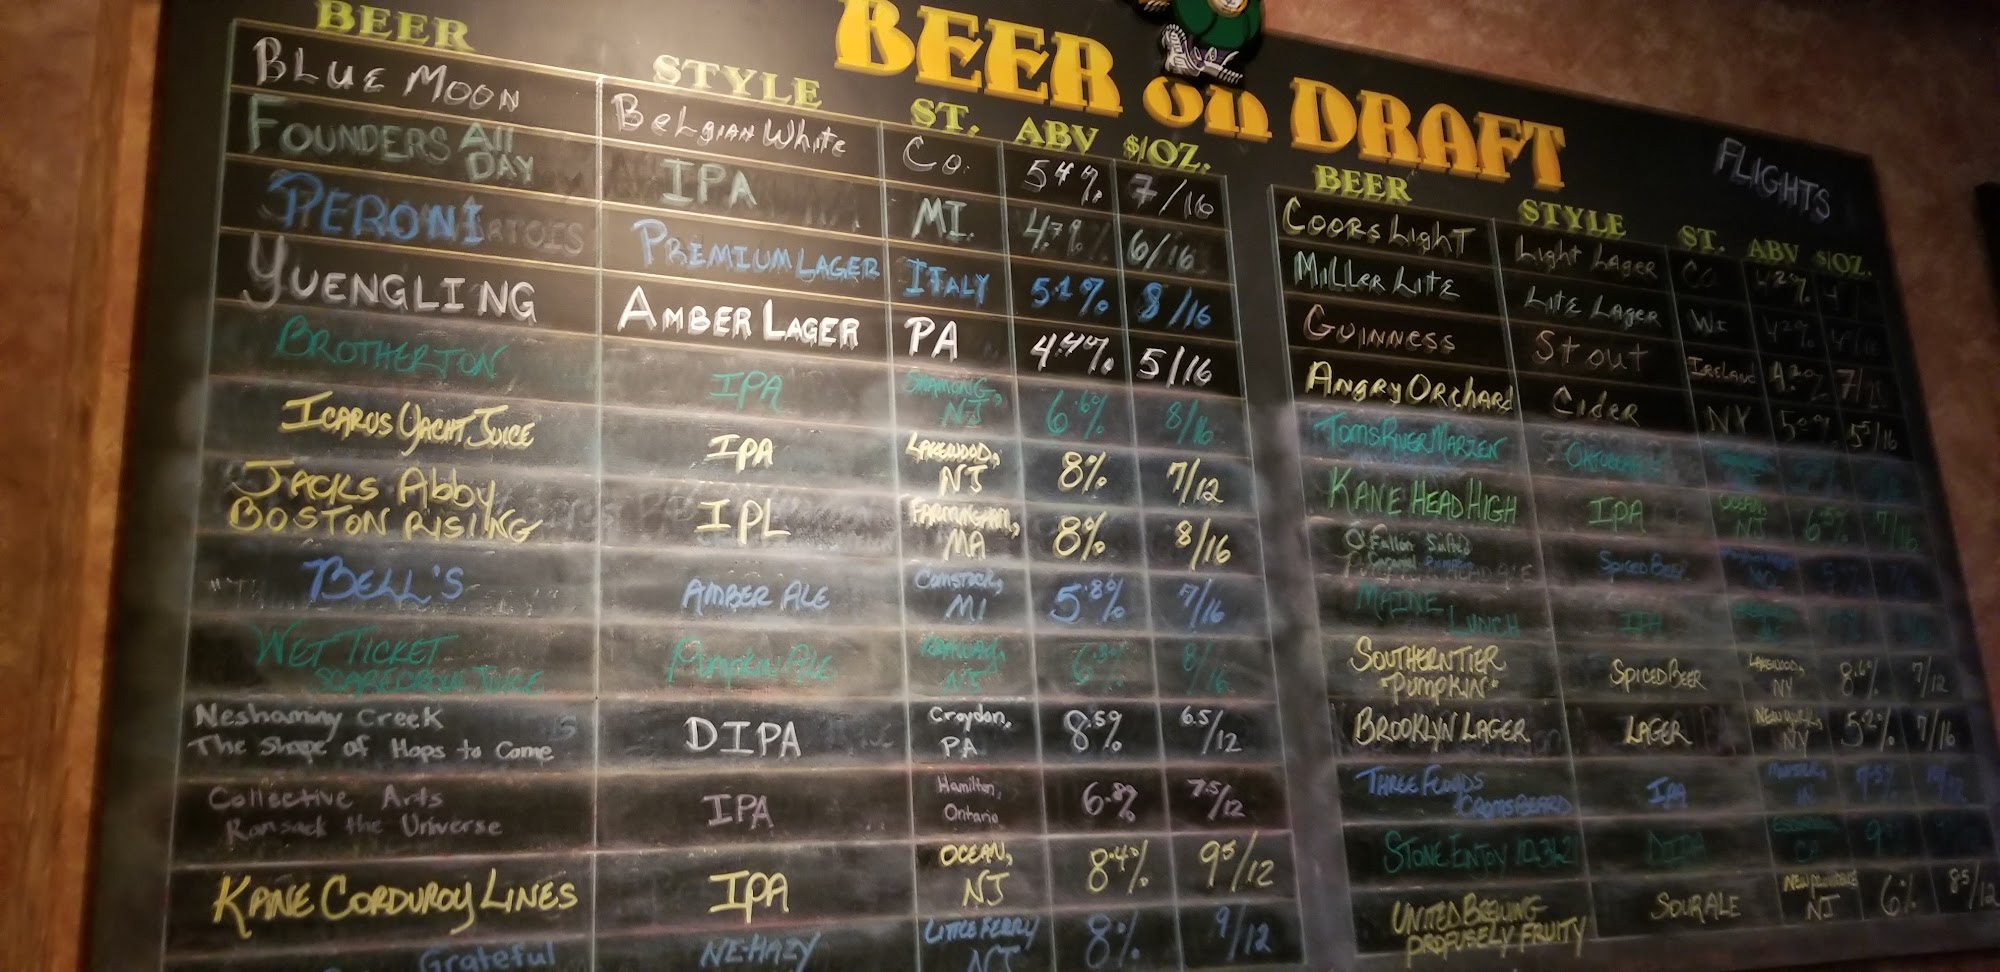 BEER on DRAFT
FLIGHTS
BEER STYLE ST. ABV $/OZ.
BLUE MOON Belgian White Co. 5.4% 7/16
FOUNDERS All DAY IPA MI. 4.7% 6/16
PERONI PREMIUM LAGER ITALY 5.1% 8/16
YUENGLING AMBER LAGER PA 4.4% 5/16
BROTHERTON IPA SHAMONG, NJ 6.6% 8/16
ICARUS YACHT JUICE IPA LAKEWOOD, NJ 8% 7/12
JACKS Abby BOSTON RISING IPL FARMINGHAM, MA 8% 8/16
BELL'S AMBER ALE COMSTOCK, MI 5.8% 7/16
WET TICKET SCAREDROW JUICE PUMPKIN ALE NJ 6.8% 8/16
Neshaminy Creek The Shape of Hops to Come DIPA Croydon, PA 8.5% 6.5/12
Collective Arts Ransack the Universe IPA Hamilton, Ontario 6.8% 7.5/12
KANE CORDUROY LINES IPA OCEAN, NJ 8.4% 9.5/12
Grateful NE-HAZY LITTLE FERRY NJ 8% 9/12
BEER STYLE ST. ABV $/OZ.
COORS LIGHT Light Lager CO 4.2% 4
MILLER LITE LITE LAGER WI 4.2%
GUINNESS Stout IRELAND 4.2% 7
ANGRY ORCHARD Cider NY 5.0% 5.5/16
TOMS RIVER MARZEN
KANE HEAD HIGH IPA OCEAN, NJ 6.5% 7/16
O'Fallon SPICED BEER
MAINE LUNCH IPA
SOUTHERN TIER "PUMPKIN" SPICED BEER LAKEWOOD, NY 8.6% 7/12
BROOKLYN LAGER LAGER NEW YORK, NY 5.2% 7/16
THREE FLOYDS CROMSBEARD IPA MUNSTER, IN
STONE ENJOY DIPA CA 9
UNITED BREWING PROFUSELY FRUITY SOUR ALE NJ 6% 8.5/12